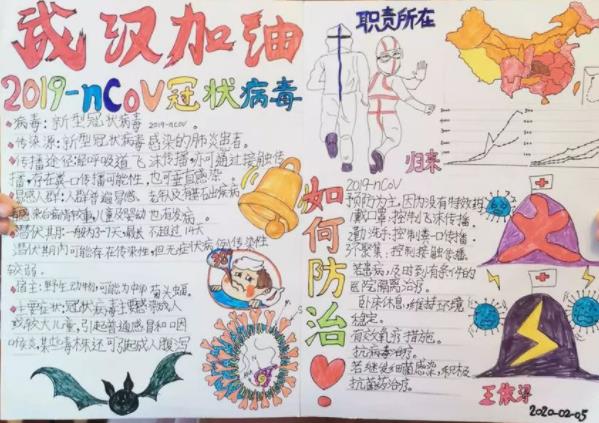 武汉加油
2019-nCoV冠状病毒
病毒:新型冠状病毒 2019-nCoV。
传染源:新型冠状病毒感染的肺炎患者。
传播途径:经呼吸道飞沫传播,亦可通过接触传
播,存在粪口传播可能性,也可垂直感染。
易感人群:人群普遍易感。老年人及有基础疾病
者感染后病情较重,儿童及婴幼也有发病。
潜伏期:一般为3-7天,最长不超过14天
潜伏期内可能存在传染性,但无症状病例传染性
较弱。
宿主:野生动物,可能为中华菊头蝠。
主要症状:冠状病毒主要感染成人
或较大儿童,引起普通感冒和口因
咳炎,某些毒株还可引起成人腹泻
职责所在
归来
如何防治!
2019-nCoV
预防为主,因为没有特效药
戴口罩:控制飞沫传播。
勤洗手:控制粪口传播。
不聚集:控制接触传播。
若患病,及时到有条件的
医院隔离治疗。
卧床休息,维持环境
稳定。
有效氧疗措施。
抗病毒治疗。
若继发细菌感染,积极
抗菌药治疗。
2020-02-05